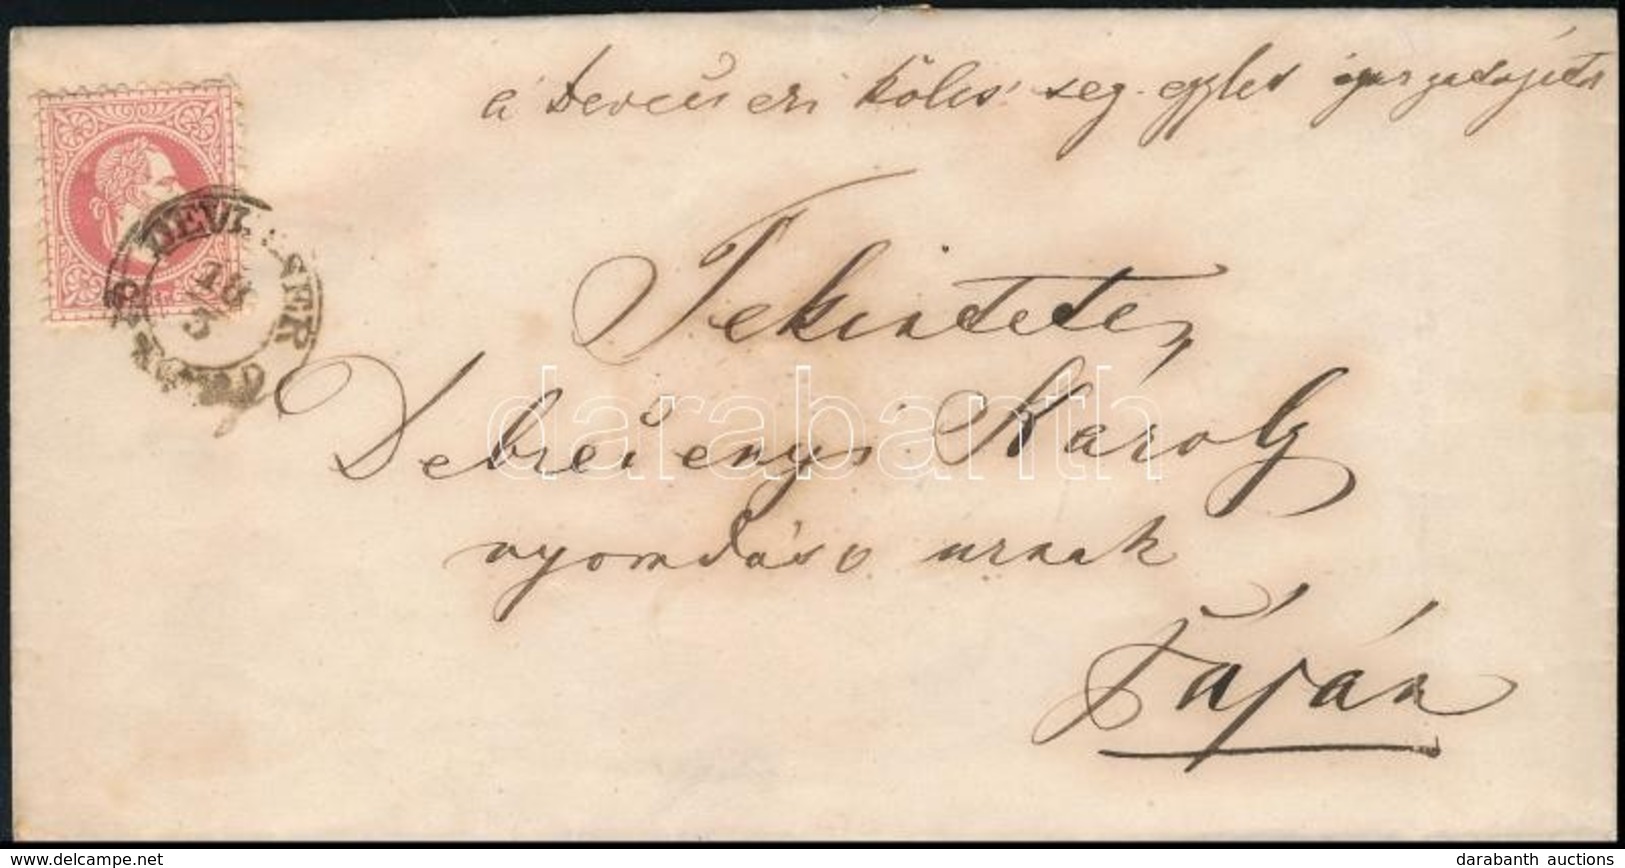 a Devecseri kölcs. seg. egylet igazgatójától
Tekintetes
Debreczenyi Károly
nyomdász urnak
Pápán
DEV SER
18
5
darabanth
darabanth auctions